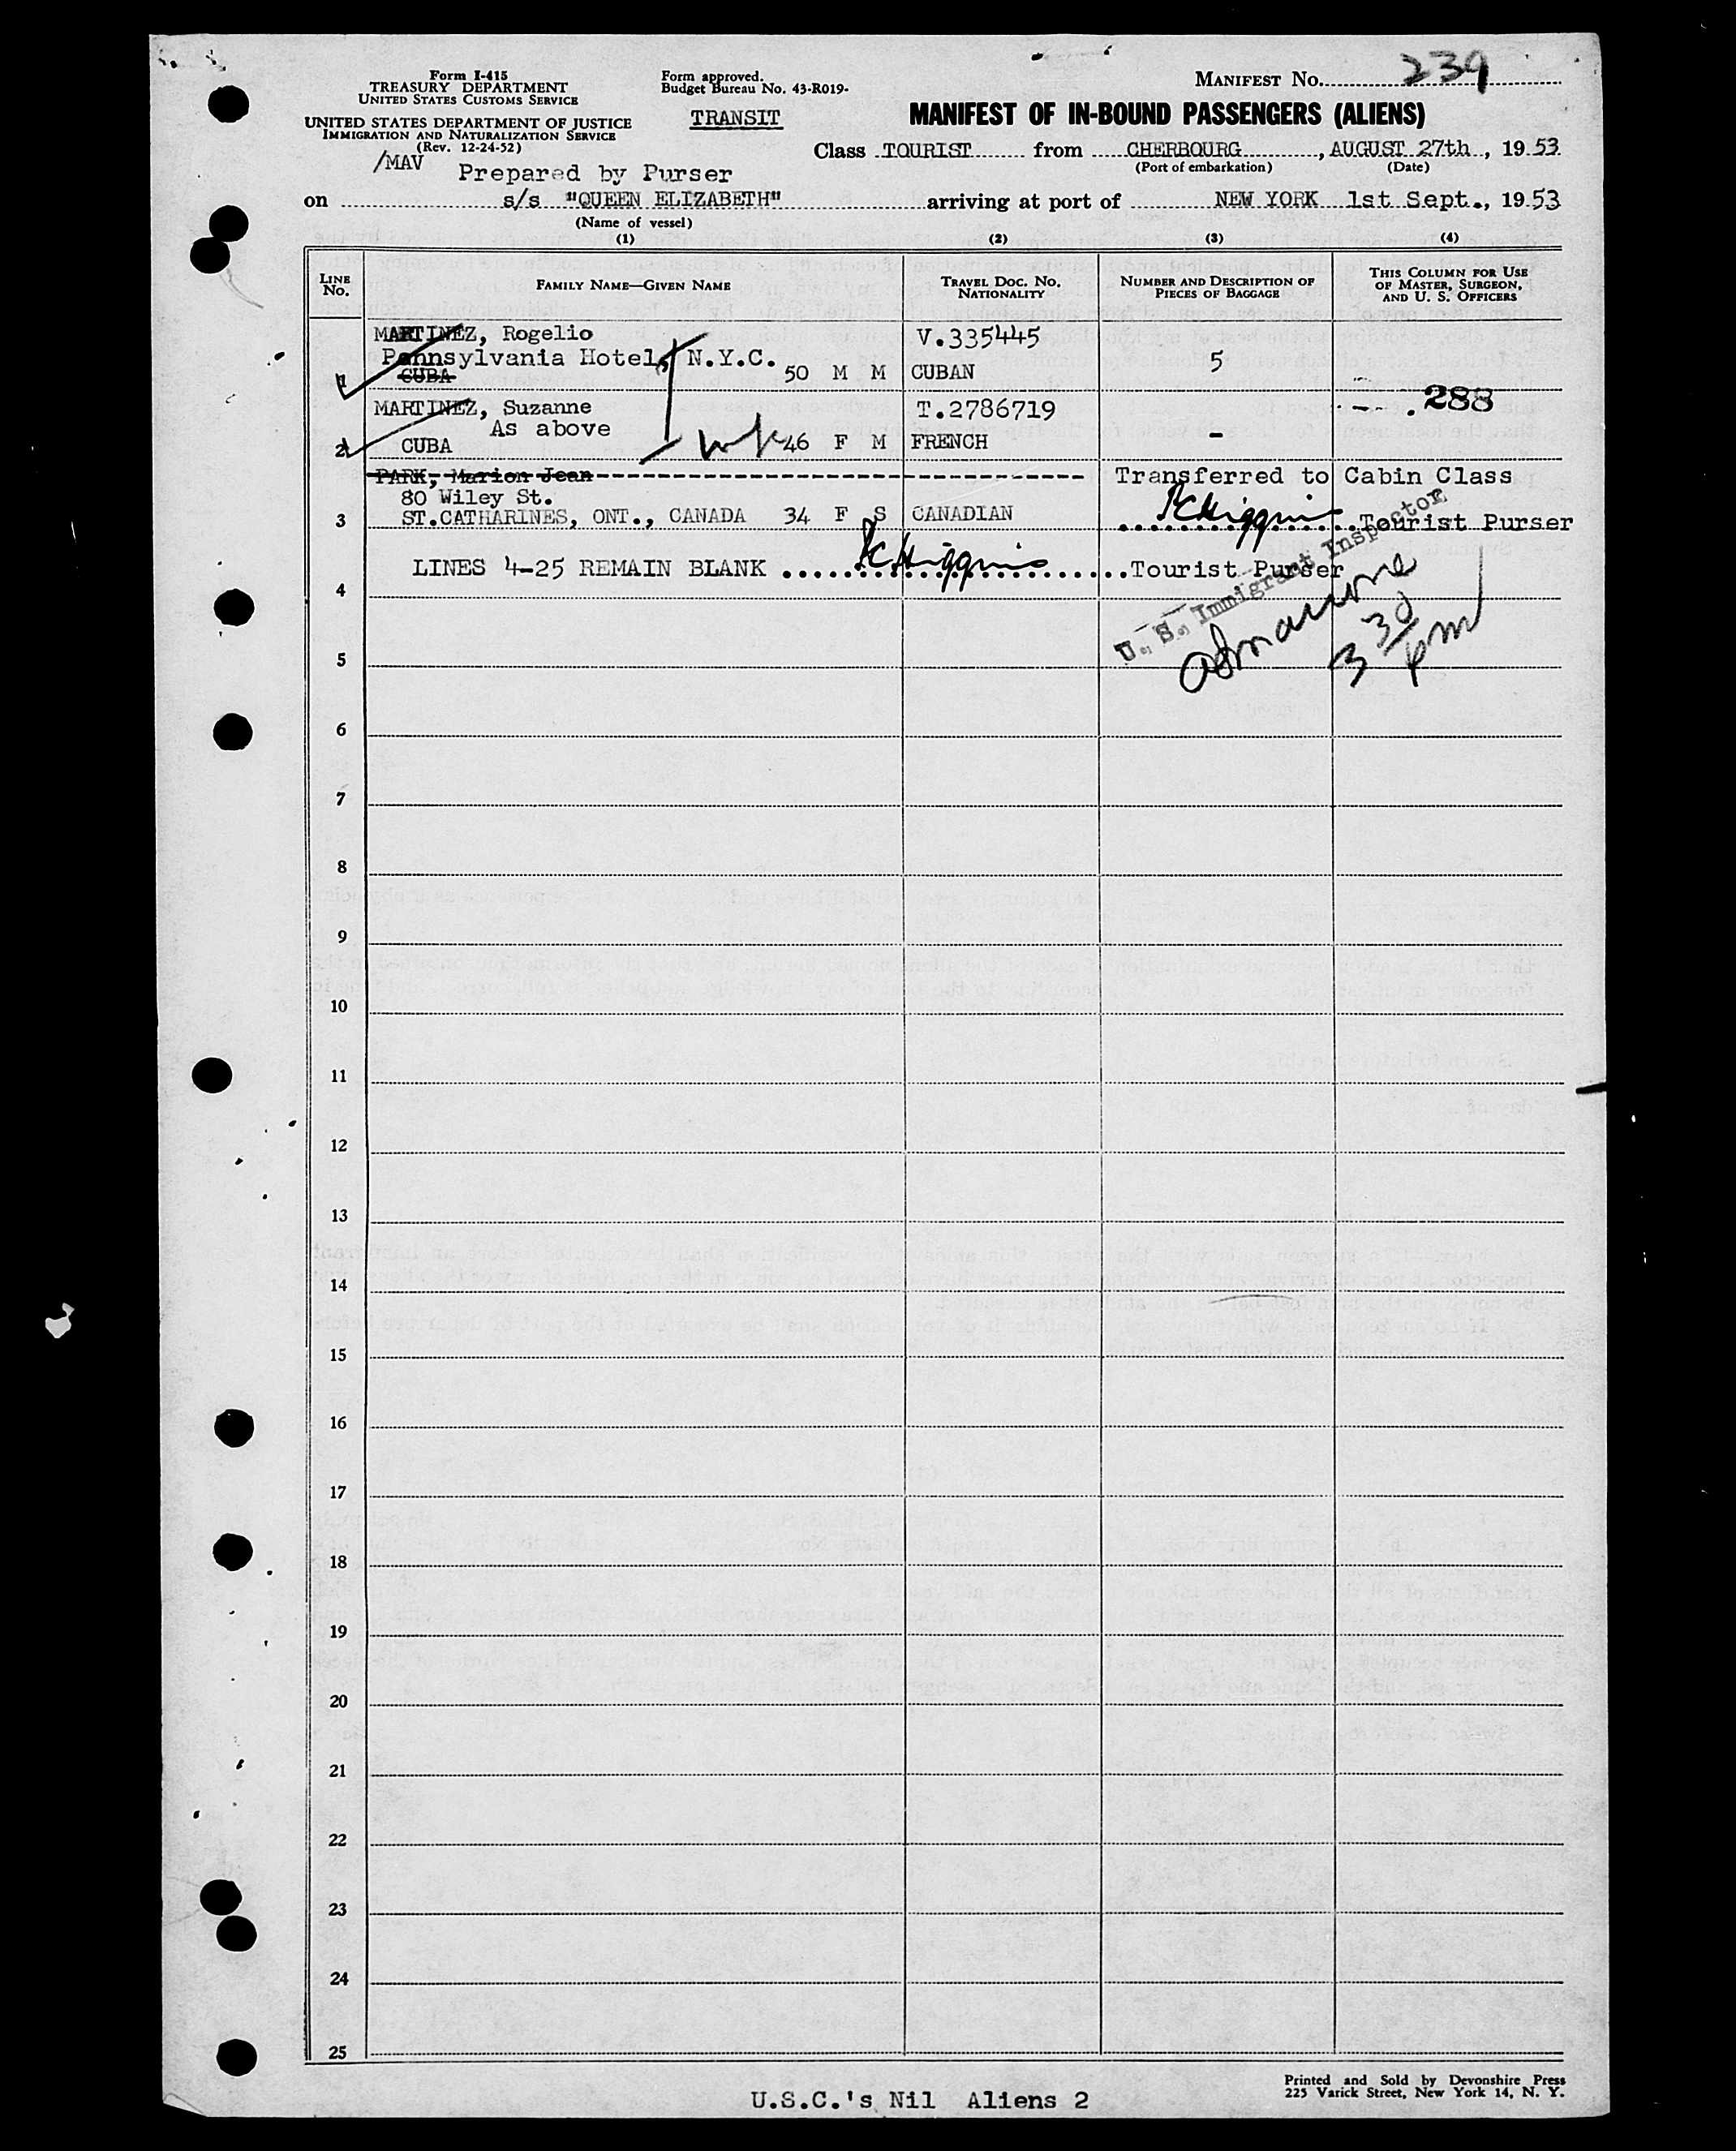 Form I-415
TREASURY DEPARTMENT
UNITED STATES CUSTOMS SERVICE
UNITED STATES DEPARTMENT OF JUSTICE
IMMIGRATION AND NATURALIZATION SERVICE
(Rev. 12-24-52)
/MAV
Form approved.
Budget Bureau No. 43-R019-
TRANSIT
MANIFEST No. 239
MANIFEST OF IN-BOUND PASSENGERS (ALIENS)
Class TOURIST from CHERBOURG, AUGUST 27th, 19 53
(Port of embarkation) (Date)
Prepared by Purser
on s/s "QUEEN ELIZABETH" arriving at port of NEW YORK 1st Sept., 19 53
(Name of vessel)
(1) (2) (3) (4)
LINE No. FAMILY NAME—GIVEN NAME TRAVEL DOC. NO. NATIONALITY NUMBER AND DESCRIPTION OF PIECES OF BAGGAGE THIS COLUMN FOR USE OF MASTER, SURGEON, AND U. S. OFFICERS
MARTINEZ, Rogelio V.335445
Pennsylvania Hotel, N.Y.C. 5
1 CUBA 50 M M CUBAN
MARTINEZ, Suzanne T.2786719 288
As above
2 CUBA 46 F M FRENCH -
PARK, Marion Jean Transferred to Cabin Class
80 Wiley St.
3 ST.CATHARINES, ONT., CANADA 34 F S CANADIAN Tourist Purser
LINES 4-25 REMAIN BLANK Tourist Purser
U. S. Immigrant Inspector
3 30 pm
4
5
6
7
8
9
10
11
12
13
14
15
16
17
18
19
20
21
22
23
24
25
U.S.C.'s Nil Aliens 2
Printed and Sold by Devonshire Press
225 Varick Street, New York 14, N. Y.